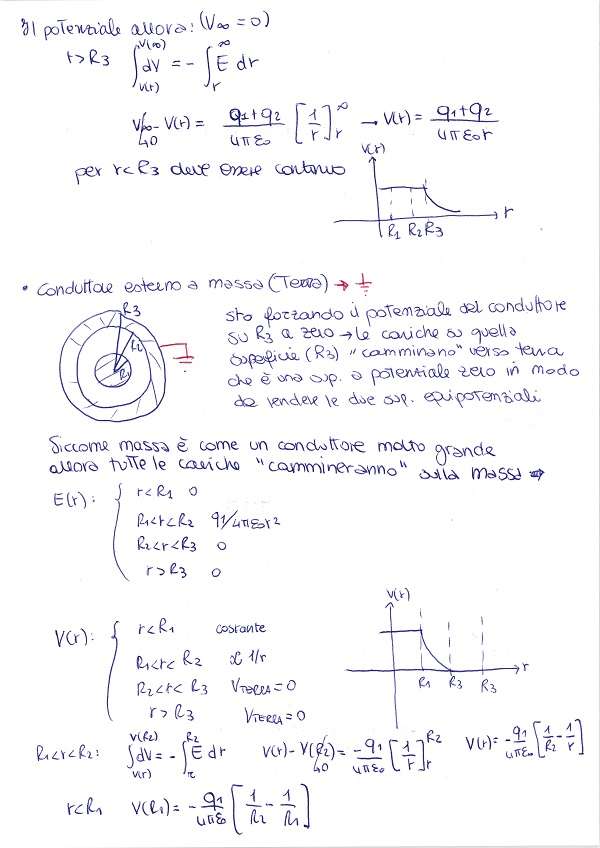 Il potenziale allora: (V∞ = 0)
r > R3 ∫_{V(r)}^{V(∞)} dV = - ∫_r^∞ E dr
V∞ - V(r) = (q1+q2)/(4πε0) [1/r]_r^∞ → V(r) = (q1+q2)/(4πε0r)
=0
per r<R3 deve essere continuo
V(r)
r
R1 R2 R3
• Conduttore esterno a massa (Terra) → ⏚
R3
R2
R1
sto forzando il potenziale del conduttore
su R3 a zero → le cariche su quella
superficie (R3) "camminano" verso terra
che è una sup. a potentiale zero in modo
da rendere le due sup. equipotenziali
Siccome massa è come un conduttore molto grande
allora tutte le cariche "cammineranno" sulla massa ⇒
E(r): { r<R1 0
R1<r<R2 q1/4πε0r²
R2<r<R3 0
r>R3 0
V(r): { r<R1 costante
R1<r<R2 ∝ 1/r
R2<r<R3 VTERRA=0
r>R3 VTERRA=0
V(r)
r
R1 R3 R3
R1<r<R2: ∫_{V(r)}^{V(R2)} dV = - ∫_r^{R2} E dr V(r) - V(R2) = -q1/(4πε0) [1/r]_r^{R2} V(r) = -q1/(4πε0) [1/R2 - 1/r]
=0
r<R1 V(R1) = - q1/(4πε0) [1/R2 - 1/R1]